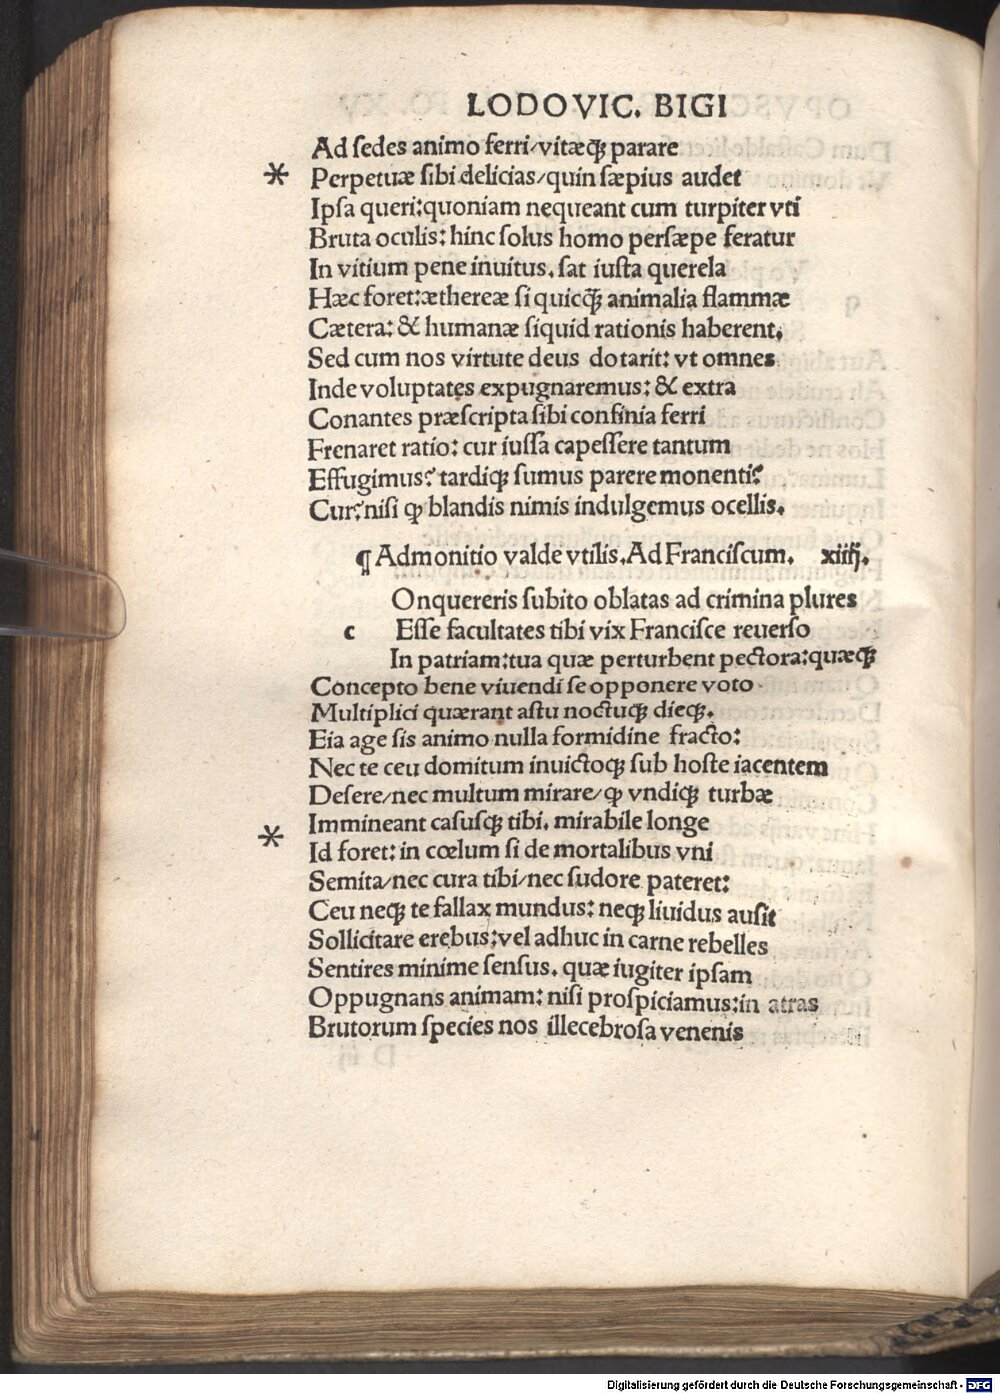 LODOVIC. BIGI
Ad ſedes animo ferri/vitæqꝫ parare
* Perpetuæ ſibi delicias/quin ſæpius audet
Ipſa queri:quoniam nequeant cum turpiter vti
Bruta oculis: hinc ſolus homo perſæpe feratur
In vitium pene inuitus. ſat iuſta querela
Hæc foret:æthereæ ſi quicqꝫ animalia flammæ
Cætera: & humanæ ſiquid rationis haberent.
Sed cum nos virtute deus dotarit: vt omnes
Inde voluptates expugnaremus: & extra
Conantes præſcripta ſibi confinia ferri
Frenaret ratio: cur iuſſa capeſſere tantum
Effugimus? tardiqꝫ ſumus parere monenti?
Cur?niſi ꝙ blandis nimis indulgemus ocellis.
¶ Admonitio valde vtilis.Ad Franciſcum. xiiij.
Onquereris ſubito oblatas ad crimina plures
c Eſſe facultates tibi vix Franciſce reuerſo
In patriam:tua quæ perturbent pectora:quæqꝫ
Concepto bene viuendi ſe opponere voto
Multiplici quærant aſtu noctuqꝫ dieqꝫ.
Eia age ſis animo nulla formidine fracto:
Nec te ceu domitum inuictoqꝫ ſub hoſte iacentem
Deſere/nec multum mirare/ꝙ vndiqꝫ turbæ
Immineant caſuſqꝫ tibi. mirabile longe
* Id foret: in cœlum ſi de mortalibus vni
Semita/nec cura tibi/nec ſudore pateret:
Ceu neqꝫ te fallax mundus: neqꝫ liuidus auſit
Sollicitare erebus:vel adhuc in carne rebelles
Sentires minime ſenſus. quæ iugiter ipſam
Oppugnans animam: niſi proſpiciamus:in atras
Brutorum ſpecies nos illecebroſa venenis
Digitalisierung gefördert durch die Deutsche Forschungsgemeinschaft - DFG